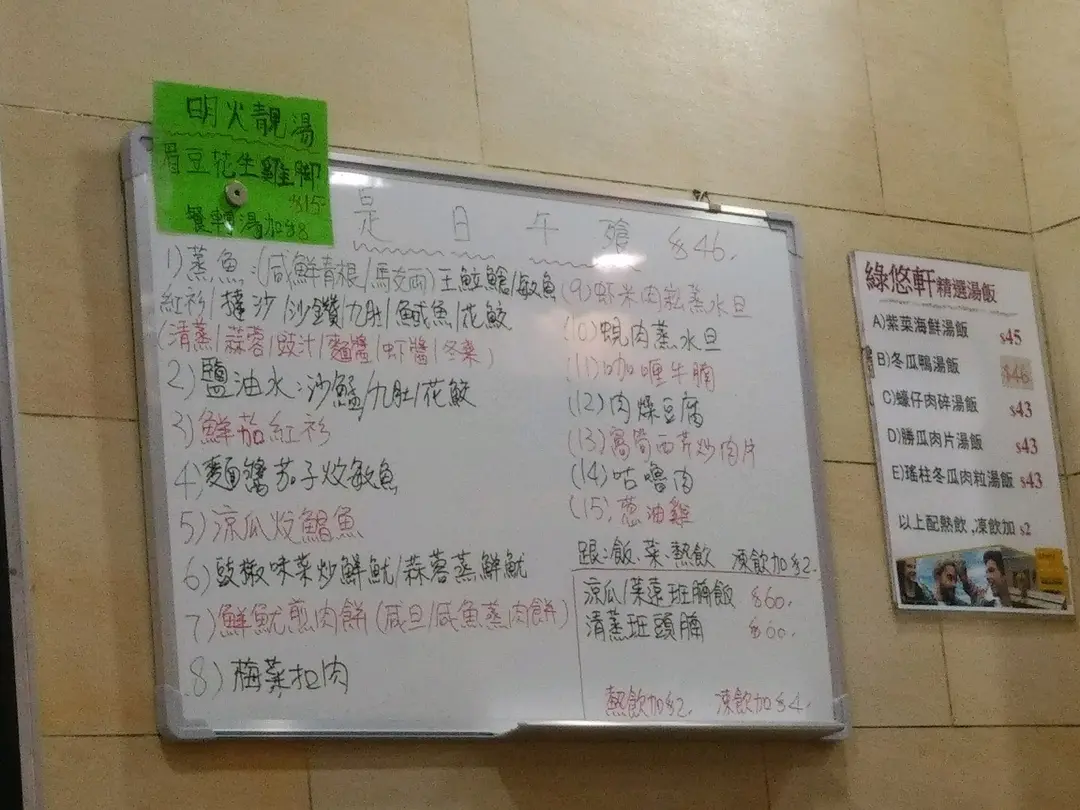 明火靚湯
眉豆花生雞腳
$15
餐轉湯加$8
是日午飱 $46.
1)蒸魚:(咸鮮青根/馬友両)王鮫鎗/敏魚
紅衫/撻沙/沙鑽/九肚/鰔魚/花鮫
(清蒸/蒜蓉/豉汁/麵醬/虾醬/冬菜)
2)鹽油水:沙鯭/九肚/花鮫
3)鮮茄紅衫
4)麵醬茄子炆敏魚
5)涼瓜炆鯧魚
6)豉椒味菜炒鮮魷/蒜蓉蒸鮮魷
7)鮮魷煎肉餅(咸旦/咸魚蒸肉餅)
8)梅菜扣肉
(9)虾米肉崧蒸水旦
(10)蜆肉蒸水旦
(11)咖喱牛腩
(12)肉燥豆腐
(13)萵筍西芹炒肉片
(14)咕嚕肉
(15)蔥油雞
跟:飯.菜.熱飲 凍飲加$2.
涼瓜/菜遠班腩飯 $60.
清蒸班頭腩 $60.
熱飲加$2. 凍飲加$4.
綠悠軒精選湯飯
A)紫菜海鮮湯飯 $45
B)冬瓜鴨湯飯 $46
C)蠔仔肉碎湯飯 $43
D)勝瓜肉片湯飯 $43
E)瑤柱冬瓜肉粒湯飯 $43
以上配熱飲,凍飲加 $2